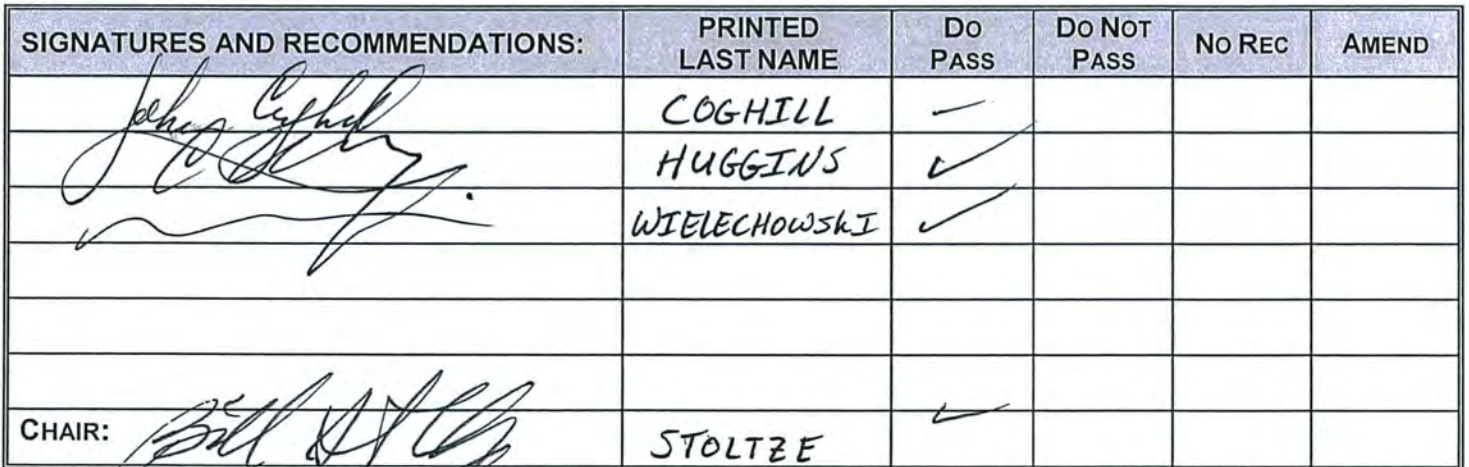 SIGNATURES AND RECOMMENDATIONS: PRINTED LAST NAME DO PASS DO NOT PASS NO REC AMEND
COGHILL —
HUGGINS ✓
WIELECHOWSKI ✓
CHAIR: STOLTZE ✓